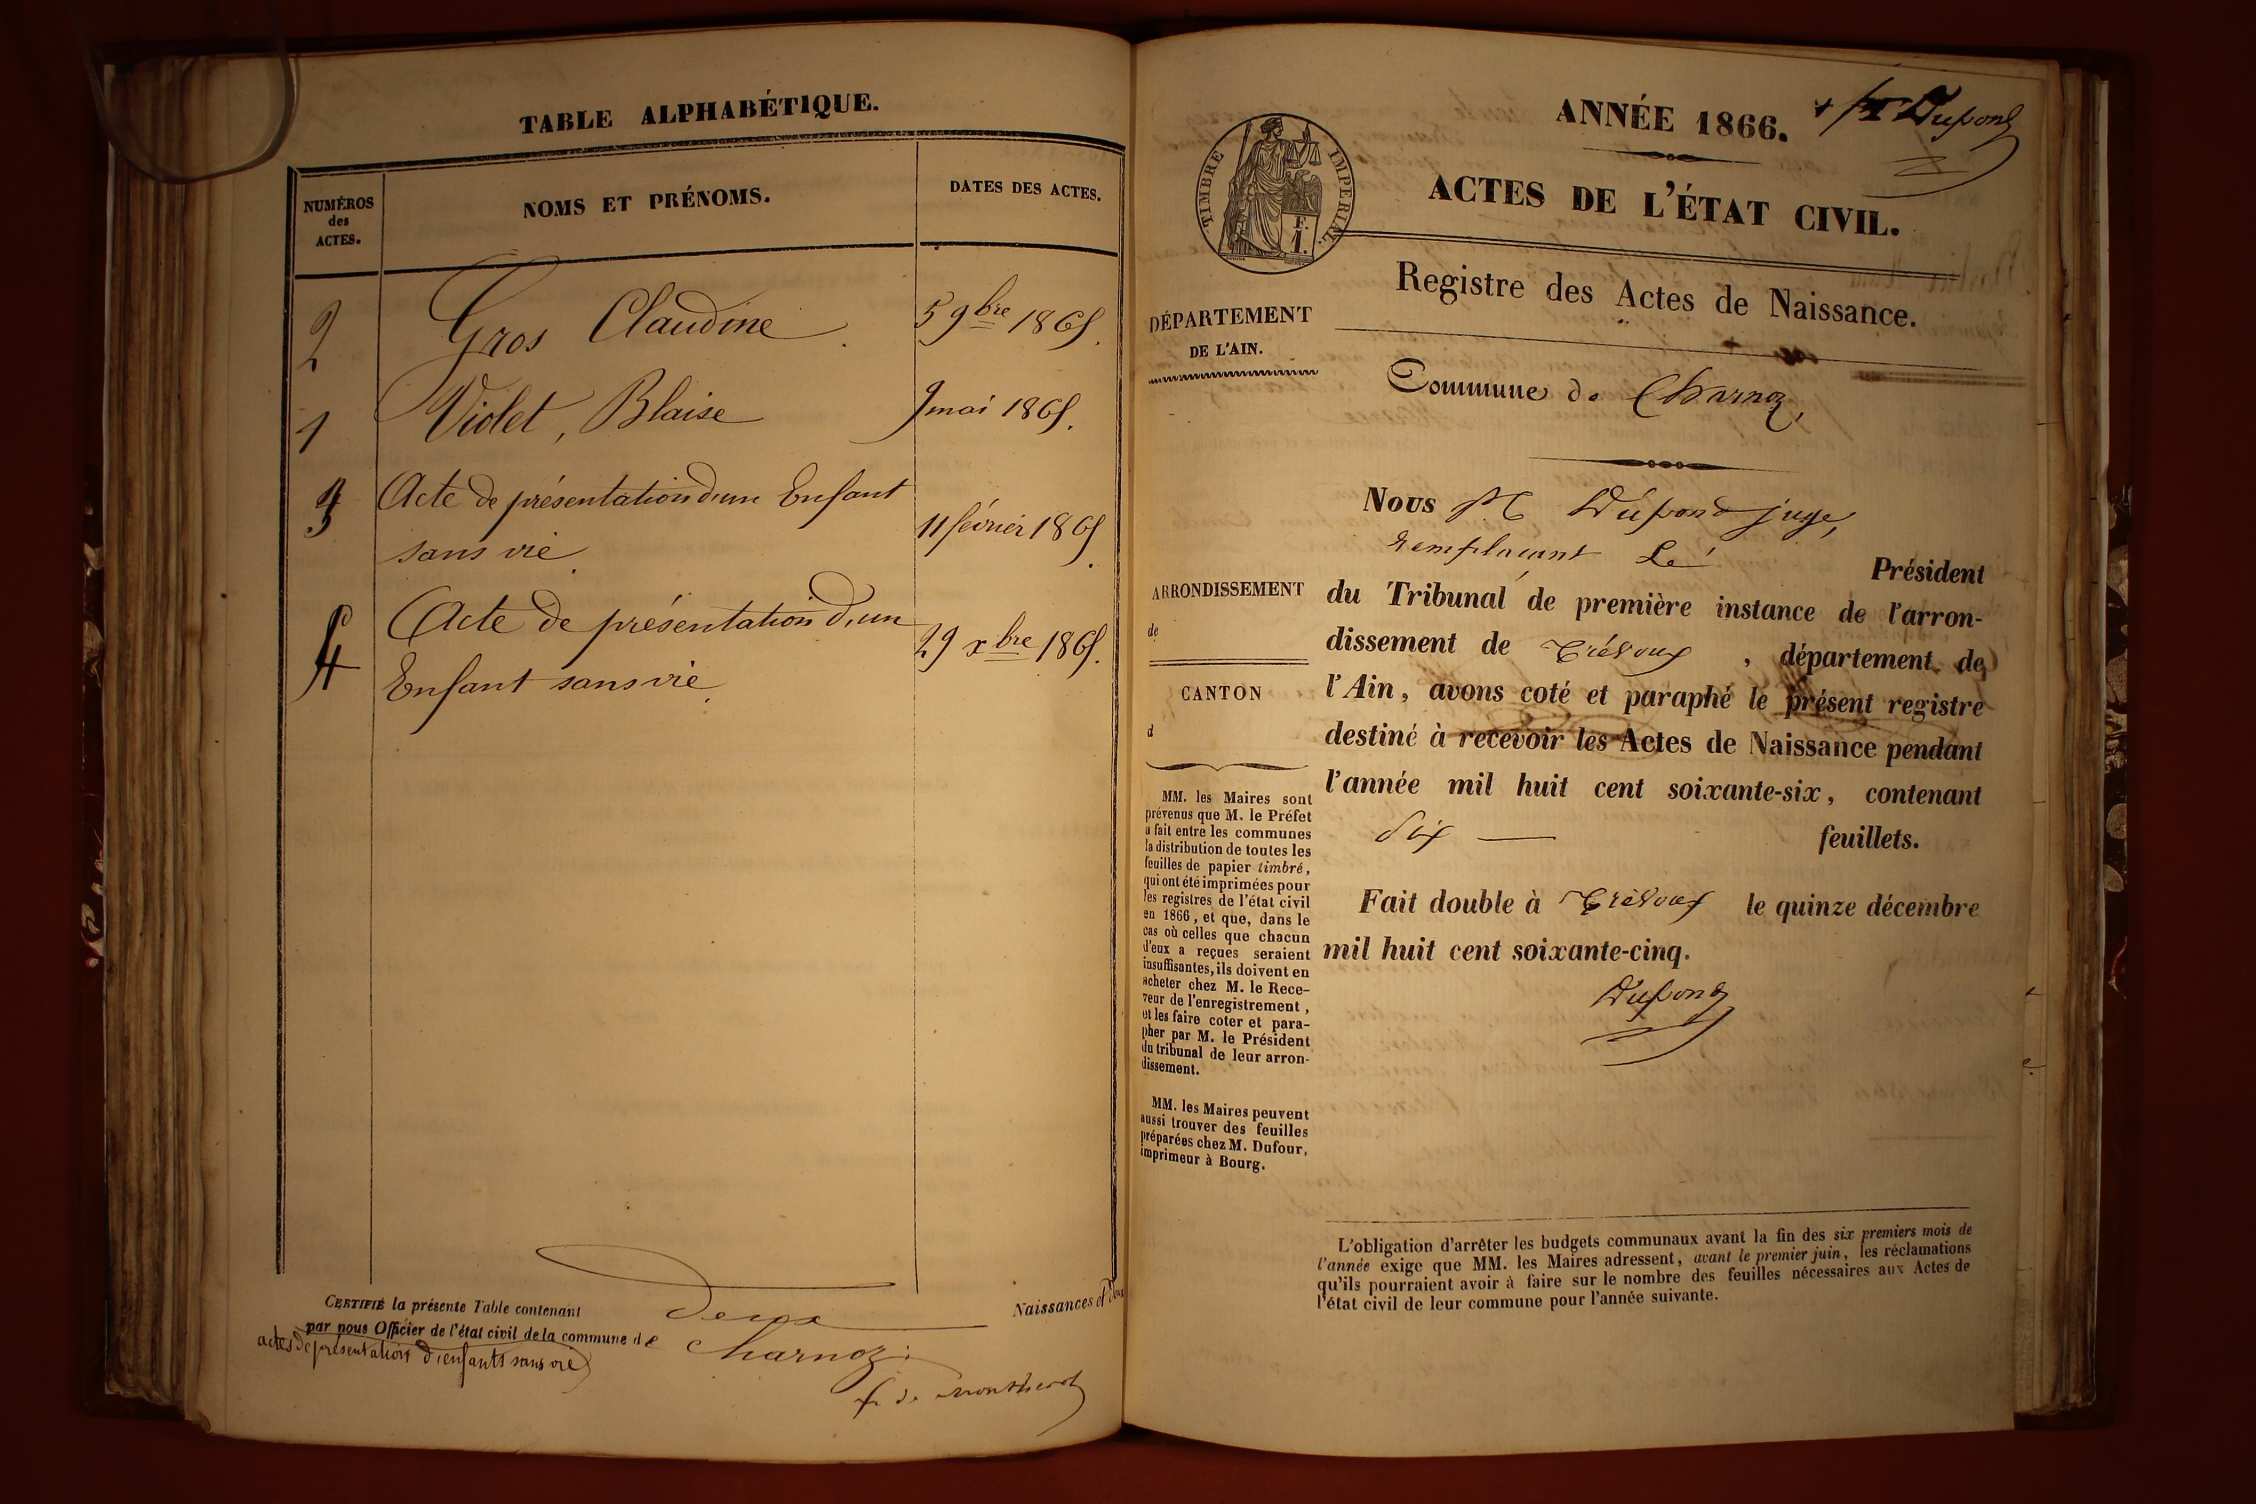 TABLE ALPHABÉTIQUE.
NUMÉROS
des
ACTES.
NOMS ET PRÉNOMS.
DATES DES ACTES.
2 Gros Claudine 5 9bre 1865.
1 Violet, Blaise 9 mai 1865.
3 Acte de présentation d'un Enfant
sans vie. 11 février 1865.
4 Acte de présentation d'un
Enfant sans vie. 29 xbre 1865.
CERTIFIÉ la présente Table contenant deux Naissances et deux
par nous Officier de l'état civil de la commune de Charnoz.
actes de présentation d'enfants sans vie
ANNÉE 1866.
Dupond
TIMBRE IMPÉRIAL.
F.
1.
ACTES DE L'ÉTAT CIVIL.
Registre des Actes de Naissance.
DÉPARTEMENT
DE L'AIN.
Commune de Charnoz,
Nous Dupond juge,
remplaçant Le Président
du Tribunal de première instance de l'arron-
dissement de Trévoux, département de
l'Ain, avons coté et paraphé le présent registre
destiné à recevoir les Actes de Naissance pendant
l'année mil huit cent soixante-six, contenant
Six — feuillets.
Fait double à Trévoux le quinze décembre
mil huit cent soixante-cinq.
Dupond
ARRONDISSEMENT
de
CANTON
d
MM. les Maires sont
prévenus que M. le Préfet
a fait entre les communes
la distribution de toutes les
feuilles de papier timbré,
qui ont été imprimées pour
les registres de l'état civil
en 1866, et que, dans le
cas où celles que chacun
d'eux a reçues seraient
insuffisantes, ils doivent en
acheter chez M. le Rece-
veur de l'enregistrement,
et les faire coter et para-
pher par M. le Président
du tribunal de leur arron-
dissement.
MM. les Maires peuvent
aussi trouver des feuilles
préparées chez M. Dufour,
imprimeur à Bourg.
L'obligation d'arrêter les budgets communaux avant la fin des six premiers mois de
l'année exige que MM. les Maires adressent, avant le premier juin, les réclamations
qu'ils pourraient avoir à faire sur le nombre des feuilles nécessaires aux Actes de
l'état civil de leur commune pour l'année suivante.